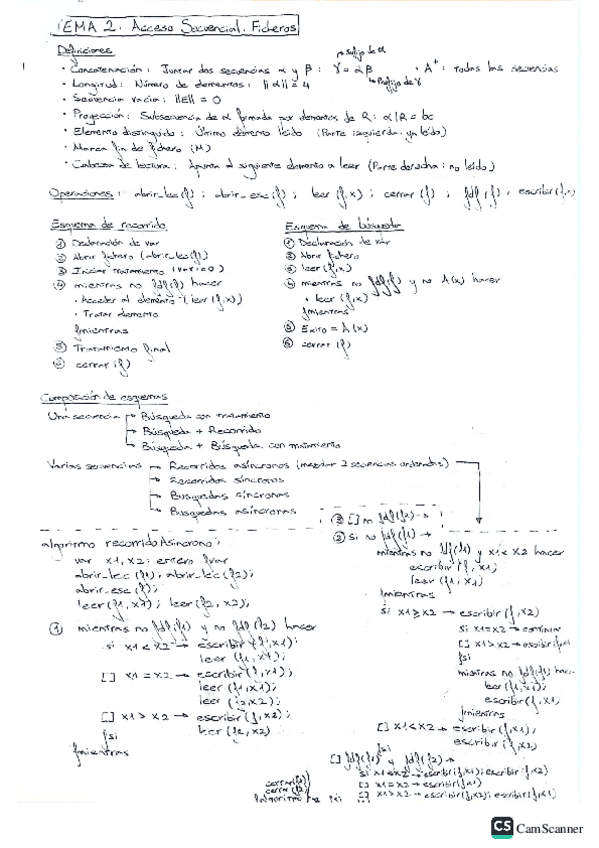 TEMA 2: Acceso Secuencial. Ficheros
Definiciones
sufijo de α
· Concatenación: Juntar dos secuencias α y β: γ = αβ · A⁺: todas las secuencias
Prefijo de γ
· Longitud: Número de elementos: ||α|| = 4
· Secuencia vacía: ||ε|| = 0
· Proyección: Subsecuencia de α formada por elementos de R: α|R = bc
· Elemento distinguido: Último elemento leído (Parte izquierda: ya leído)
· Marca fin de fichero (M)
· Cabeza de lectura: Apunta al siguiente elemento a leer (Parte derecha: no leído)
Operaciones: abrir_lec(f); abrir_esc(f); leer(f,x); cerrar(f); fdf(f); escribir(f,x)
Esquema de recorrido
① Declaración de var
② Abrir fichero (abrir_lec(f))
③ Iniciar tratamiento (var:=0)
④ mientras no fdf(f) hacer
· Acceder al elemento (leer(f,x))
· Tratar elemento
fmientras
⑤ Tratamiento final
⑥ cerrar(f)
Esquema de búsqueda
① Declaración de var
② Abrir fichero
③ leer(f,x)
④ mientras no fdf(f) y no A(x) hacer
· leer(f,x)
fmientras
⑤ Éxito = A(x)
⑥ cerrar(f)
Composición de esquemas
Una secuencia → Búsqueda con tratamiento
→ Búsqueda + Recorrido
→ Búsqueda + Búsqueda con tratamiento
Varias secuencias → Recorridos asíncronos (mezclar 2 secuencias ordenadas)
→ Recorridos síncronos
→ Búsquedas síncronas
→ Búsquedas asíncronas
algoritmo recorridoAsincrono;
var x1, x2: entero fvar
abrir_lec(f1); abrir_lec(f2);
abrir_esc(f);
leer(f1,x1); leer(f2,x2);
① mientras no fdf(f1) y no fdf(f2) hacer
si x1 < x2 → escribir(f,x1);
leer(f1,x1);
[] x1 = x2 → escribir(f,x1);
leer(f1,x1);
leer(f2,x2);
[] x1 > x2 → escribir(f,x2);
leer(f2,x2)
fsi
fmientras
③ [] no fdf(f2) →
② si no fdf(f1) →
mientras no fdf(f1) y x1 < x2 hacer
escribir(f,x1)
leer(f1,x1)
fmientras
si x1 ≥ x2 → escribir(f,x2)
si x1 = x2 → continuar
[] x1 > x2 → escribir(f,x1)
fsi
mientras no fdf(f1) hacer
leer(f1,x1);
escribir(f,x1)
fmientras
[] x1 < x2 → escribir(f,x1);
escribir(f,x2)
fsi
[] fdf(f1) y fdf(f2) →
si x1 < x2 → escribir(f,x1); escribir(f,x2)
[] x1 = x2 → escribir(f,x1)
[] x1 > x2 → escribir(f,x2); escribir(f,x1)
cerrar(f1)
cerrar(f2)
falgoritmo
CS CamScanner